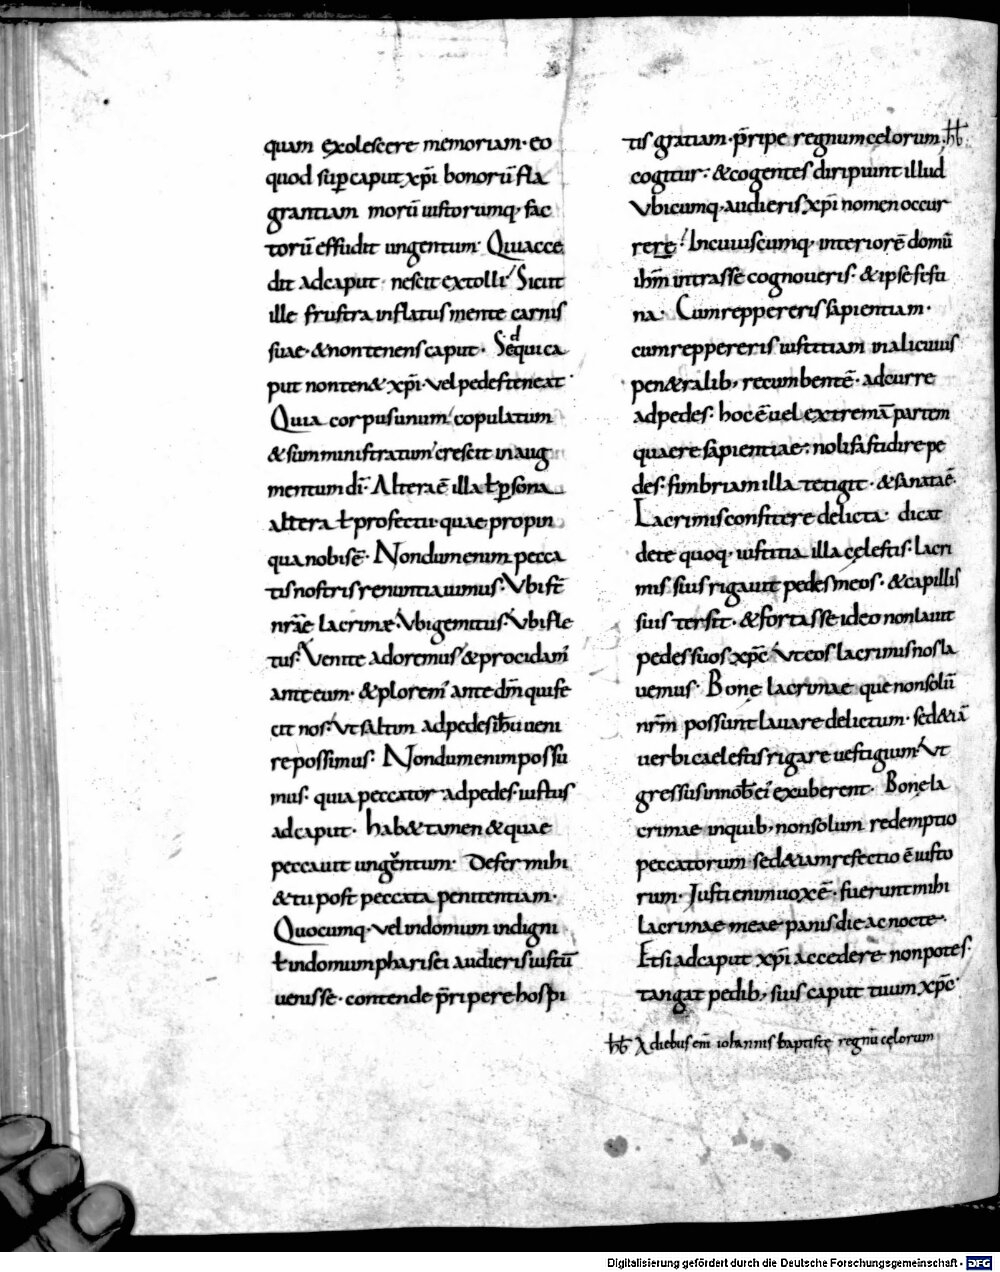 quam exolescere memoriam· eo
quod sup caput xp̄i bonorū fla
grantiam morū iustorumq· fac
torū effudit ungentum· Qui acce
dit ad caput· nescit extolli· Sicut
ille frustra inflatus mente carnis
suae· & non tenens caput· Sed qui ca
put non ten& xp̄i· vel pedes teneat·
Quia corpus unum copulatum
& subministratum crescit in aug
mentum dī· Altera ē illa ł psona
altera ł profectu· quae propin
qua nobis ē· Nondum enim pecca
tis nostris renuntiavimus· Ubi st̄
nrāe lacrimæ· Ubi gemitus· Ubi fle
tus· Venite adoremus & procidam̄
ante eum· & plorem̄ ante dn̄m qui fe
cit nos· Ut saltim ad pedes ihū ueni
re possimus· Nondum enim possu
mus· quia peccator ad pedes· iustus
ad caput· hab& tamen & quae
peccavit ungentum· Defer mihi
& tu post peccata penitentiam·
Quocumq· vel in domum indigni
ł in domum pharisei audieris iustū
uenisse· contende p̄ripere hospi
tis gratiam· p̄ripe regnum celorum· hƀ
cogitur· & cogentes diripiunt illud
Ubicumq· audieris xp̄i nomen occur
rere· In cuiuscumq· interiorē domū
ihm̄ intrasse cognoveris· & ipse festi
na· Cum reppereris sapientiam·
cum reppereris iustitiam in alicuius
pen&ralib; recumbentē· adcurre
ad pedes· hoc ē uel extremā partem
quaere sapientiae· noli fastidire pe
des· fimbriam illa tetigit· & sanata ē·
Lacrimis confitere delicta· dicat
de te quoq· iustitia illa cęlestis· lacri
mis suis rigavit pedes meos· & capillis
suis tersit· & fortasse ideo non lavit
pedes suos xp̄c· Ut eos lacrimis nos la
uemus· Bonę lacrimae que non solū
nrm̄ possunt lavare delictum· sed & iā
uerbi caelestis rigare uestigium· Ut
gressus in nob̄ ei exuberent· Bonę la
crimae inquib; non solum redemptio
peccatorum sed & iam refectio ē iusto
rum· Justi enim uox ē· fuerunt mihi
lacrimae meae panis die ac nocte·
Et si ad caput xp̄i accedere non potes·
tangat pedib; suis caput tuum xp̄c·
hƀ A diebus em̄ iohannis baptistę regnū cęlorum
Digitalisierung gefördert durch die Deutsche Forschungsgemeinschaft - DFG